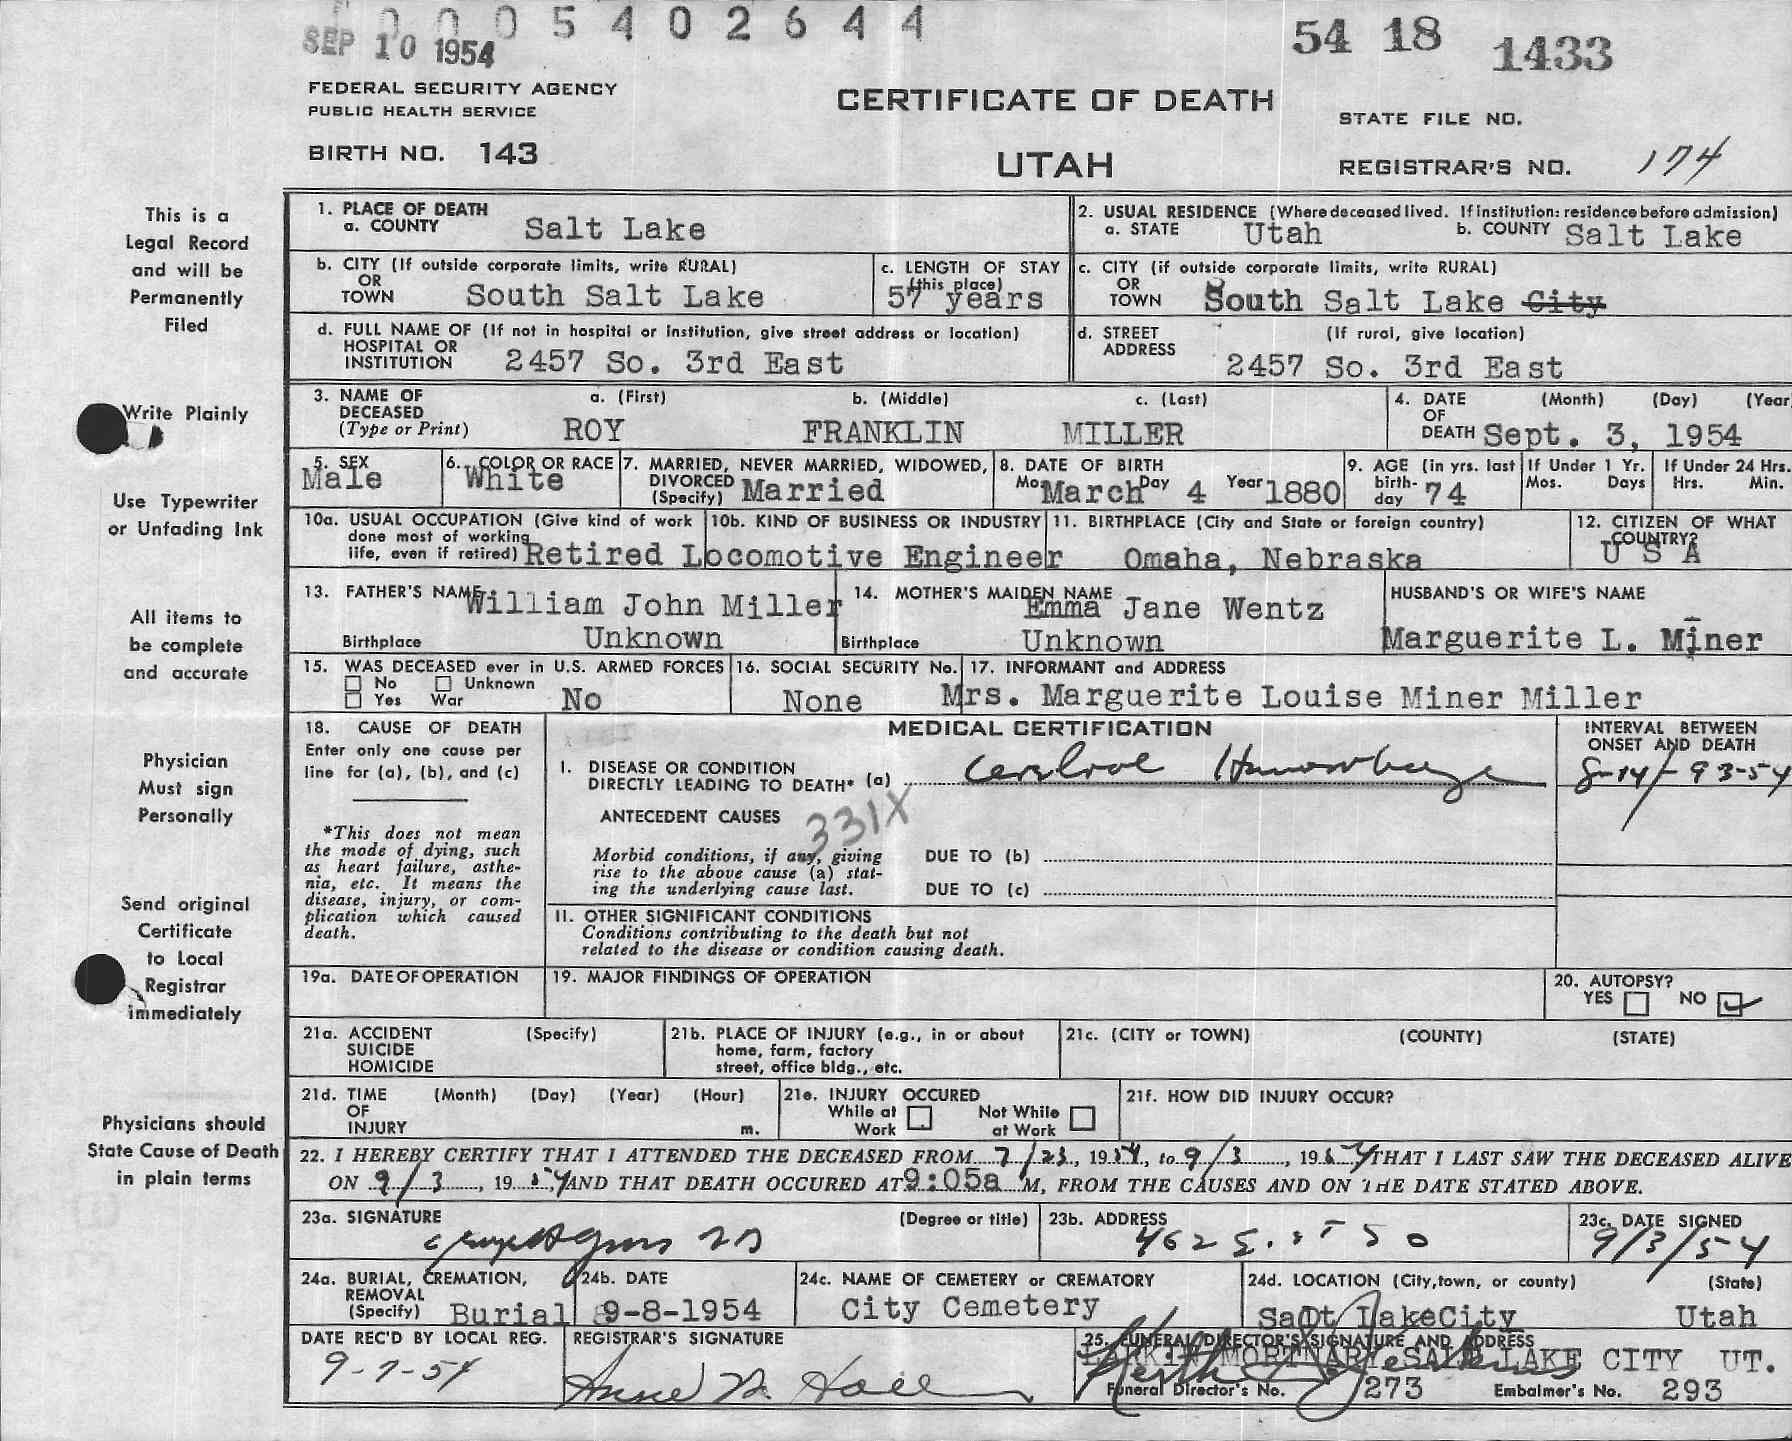 0 0 0 5 4 0 2 6 4 4
SEP 10 1954
54 18 1433
FEDERAL SECURITY AGENCY
PUBLIC HEALTH SERVICE
CERTIFICATE OF DEATH
STATE FILE NO.
BIRTH NO. 143
UTAH
REGISTRAR'S NO. 174
This is a
Legal Record
and will be
Permanently
Filed
Write Plainly
Use Typewriter
or Unfading Ink
All items to
be complete
and accurate
Physician
Must sign
Personally
Send original
Certificate
to Local
Registrar
immediately
Physicians should
State Cause of Death
in plain terms
1. PLACE OF DEATH
a. COUNTY Salt Lake
2. USUAL RESIDENCE (Where deceased lived. If institution: residence before admission)
a. STATE Utah b. COUNTY Salt Lake
b. CITY (If outside corporate limits, write RURAL)
OR
TOWN South Salt Lake
c. LENGTH OF STAY
(this place)
57 years
c. CITY (if outside corporate limits, write RURAL)
OR
TOWN South Salt Lake City
d. FULL NAME OF (If not in hospital or institution, give street address or location)
HOSPITAL OR
INSTITUTION 2457 So. 3rd East
d. STREET (If rural, give location)
ADDRESS
2457 So. 3rd East
3. NAME OF a. (First) b. (Middle) c. (Last)
DECEASED
(Type or Print) ROY FRANKLIN MILLER
4. DATE (Month) (Day) (Year
OF
DEATH Sept. 3, 1954
5. SEX
Male
6. COLOR OR RACE
White
7. MARRIED, NEVER MARRIED, WIDOWED,
DIVORCED
(Specify) Married
8. DATE OF BIRTH
Mo. March Day 4 Year 1880
9. AGE (in yrs. last
birth-
day 74
If Under 1 Yr.
Mos. Days
If Under 24 Hrs.
Hrs. Min.
10a. USUAL OCCUPATION (Give kind of work
done most of working
life, even if retired) Retired Locomotive Engineer
10b. KIND OF BUSINESS OR INDUSTRY
11. BIRTHPLACE (City and State or foreign country)
Omaha, Nebraska
12. CITIZEN OF WHAT
COUNTRY?
U S A
13. FATHER'S NAME William John Miller
Birthplace Unknown
14. MOTHER'S MAIDEN NAME
Emma Jane Wentz
Birthplace Unknown
HUSBAND'S OR WIFE'S NAME
Marguerite L. Miner
15. WAS DECEASED ever in U.S. ARMED FORCES
No Unknown
Yes War No
16. SOCIAL SECURITY No.
None
17. INFORMANT and ADDRESS
Mrs. Marguerite Louise Miner Miller
18. CAUSE OF DEATH
Enter only one cause per
line for (a), (b), and (c)
*This does not mean
the mode of dying, such
as heart failure, asthe-
nia, etc. It means the
disease, injury, or com-
plication which caused
death.
MEDICAL CERTIFICATION
INTERVAL BETWEEN
ONSET AND DEATH
I. DISEASE OR CONDITION
DIRECTLY LEADING TO DEATH* (a) Cerebral Hemorrhage
8-14/-9 3-54
ANTECEDENT CAUSES
331X
Morbid conditions, if any, giving
rise to the above cause (a) stat-
ing the underlying cause last.
DUE TO (b)
DUE TO (c)
II. OTHER SIGNIFICANT CONDITIONS
Conditions contributing to the death but not
related to the disease or condition causing death.
19a. DATE OF OPERATION
19. MAJOR FINDINGS OF OPERATION
20. AUTOPSY?
YES NO
21a. ACCIDENT (Specify)
SUICIDE
HOMICIDE
21b. PLACE OF INJURY (e.g., in or about
home, farm, factory
street, office bldg., etc.
21c. (CITY or TOWN) (COUNTY) (STATE)
21d. TIME (Month) (Day) (Year) (Hour)
OF
INJURY m.
21e. INJURY OCCURED
While at Not While
Work at Work
21f. HOW DID INJURY OCCUR?
22. I HEREBY CERTIFY THAT I ATTENDED THE DECEASED FROM 7/23, 1954, to 9/3, 1954 THAT I LAST SAW THE DECEASED ALIVE
ON 9/3, 1954 AND THAT DEATH OCCURED AT 9:05a M, FROM THE CAUSES AND ON THE DATE STATED ABOVE.
23a. SIGNATURE (Degree or title)
23b. ADDRESS
23c. DATE SIGNED
9/3/54
24a. BURIAL, CREMATION,
REMOVAL
(Specify) Burial
24b. DATE
9-8-1954
24c. NAME OF CEMETERY or CREMATORY
City Cemetery
24d. LOCATION (City, town, or county) (State)
Salt LakeCity Utah
DATE REC'D BY LOCAL REG.
9-7-54
REGISTRAR'S SIGNATURE
25. FUNERAL DIRECTOR'S SIGNATURE AND ADDRESS
LARKIN MORTUARY SALT LAKE CITY UT.
Funeral Director's No. 273 Embalmer's No. 293